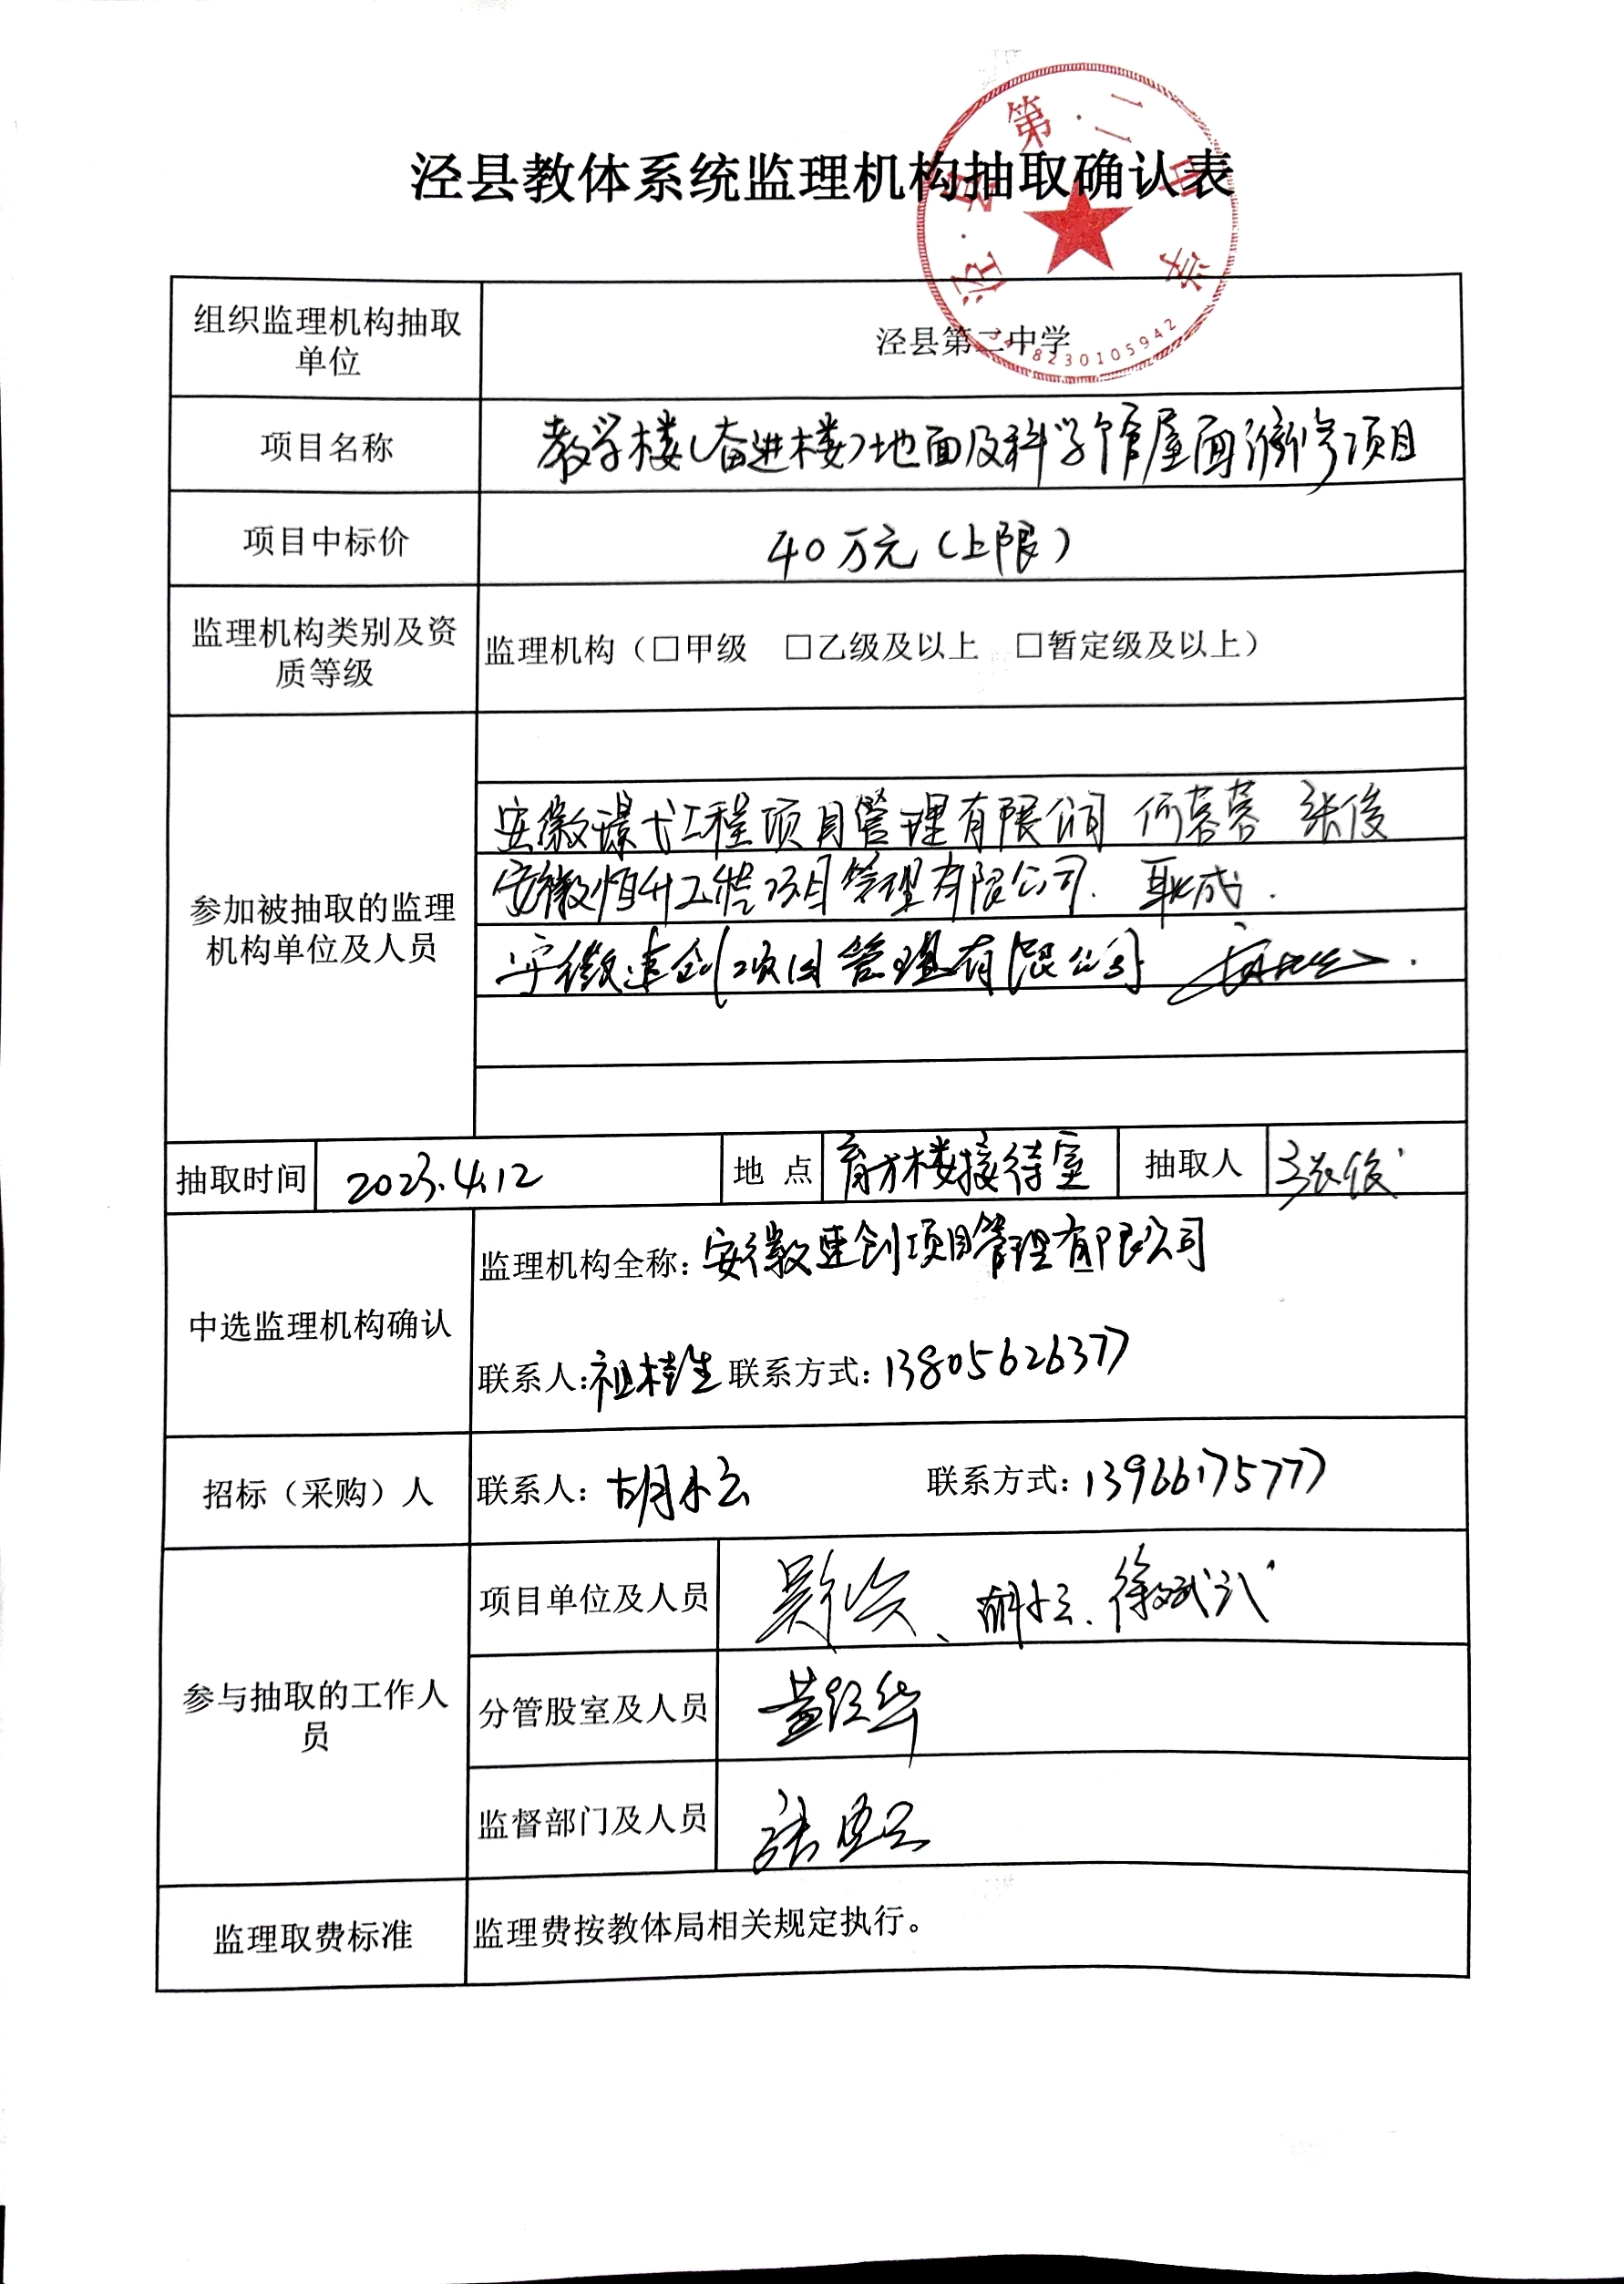 泾县教体系统监理机构抽取确认表
泾县第二中学
3418230105942
组织监理机构抽取
单位
泾县第二中学
项目名称
教学楼(奋进楼)地面及科学馆屋面维修项目
项目中标价
40万元(上限)
监理机构类别及资
质等级
监理机构（□甲级 □乙级及以上 □暂定级及以上）
参加被抽取的监理
机构单位及人员
安徽璟弋工程项目管理有限公司 何蓉蓉 张俊
安徽恒升工程项目管理有限公司. 耿成.
安徽建创项目管理有限公司
抽取时间
2023.4.12
地 点
育才楼接待室
抽取人
张俊
中选监理机构确认
监理机构全称：安徽建创项目管理有限公司
联系人：祖桂生 联系方式：13805626377
招标（采购）人
联系人：胡小云 联系方式：13966175777
参与抽取的工作人
员
项目单位及人员
胡小云、徐斌
分管股室及人员
黄红华
监督部门及人员
张
监理取费标准
监理费按教体局相关规定执行。